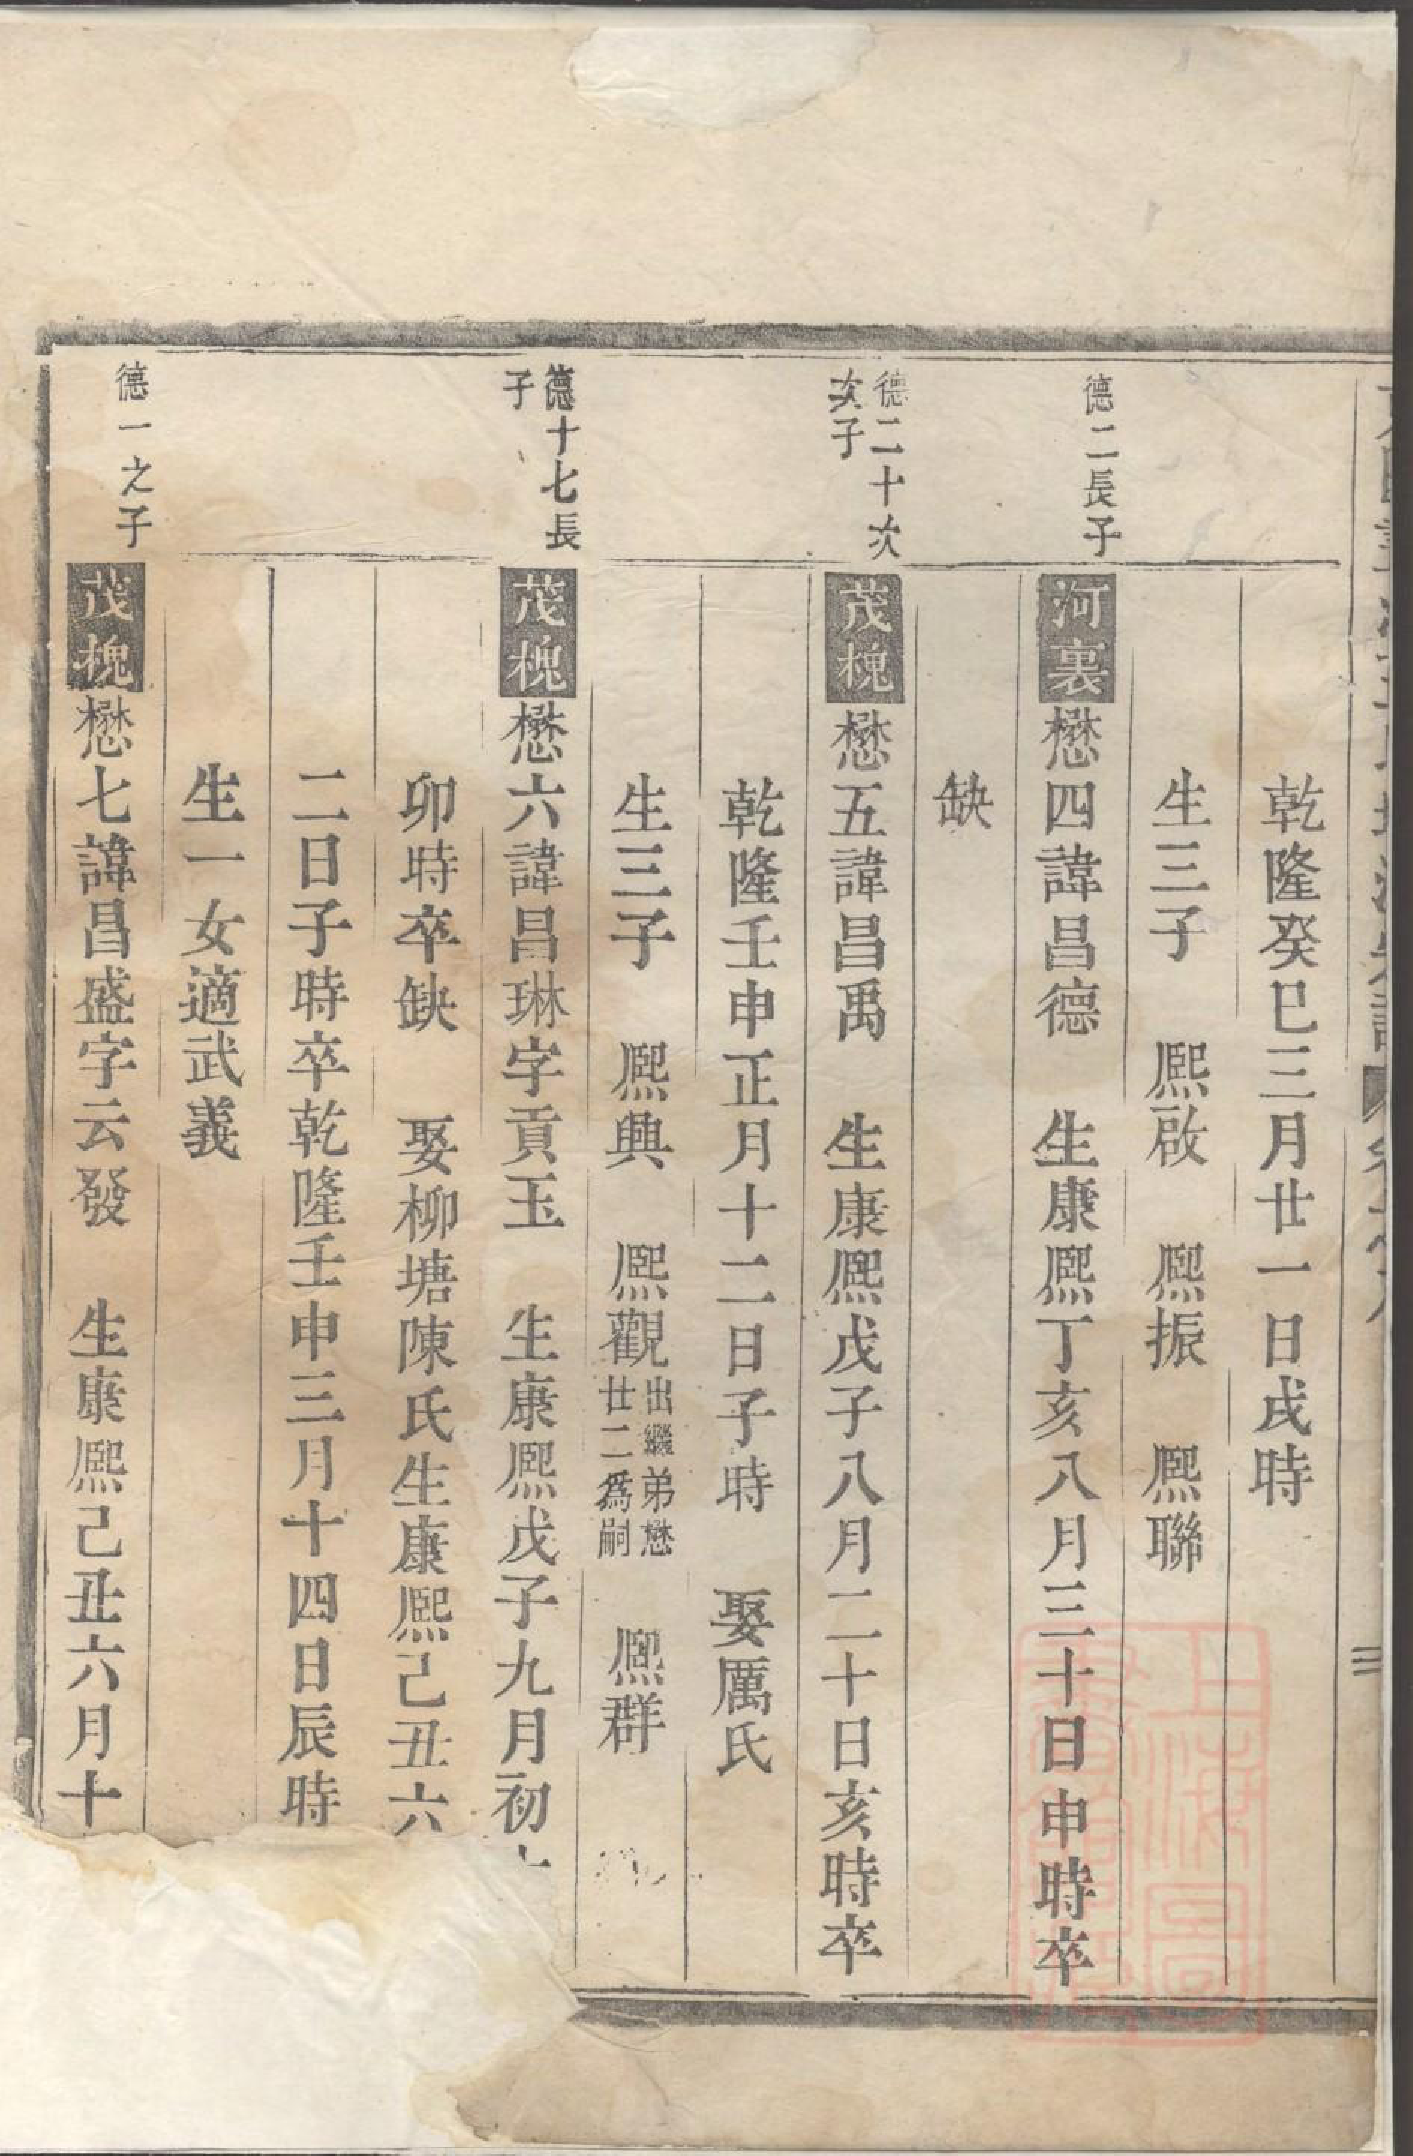 乾隆癸巳三月廿一日戌時
生三子　熈啟　熈振　熈聯
德二長子
河裏懋四諱昌德　生康熈丁亥八月三十日申時卒
缺
德二十次次子
茂槐懋五諱昌禹　生康熈戊子八月二十日亥時卒
乾隆壬申正月十二日子時　娶厲氏
生三子　熈興　熈觀出繼弟懋廿二爲嗣　熈群
德十七長子
茂槐懋六諱昌琳字貢玉　生康熈戊子九月初
卯時卒缺　娶柳塘陳氏生康熈己丑六
二日子時卒乾隆壬申三月十四日辰時
生一女適武義
德一之子
茂槐懋七諱昌盛字云發　生康熈己丑六月十
三
上海圖書館藏